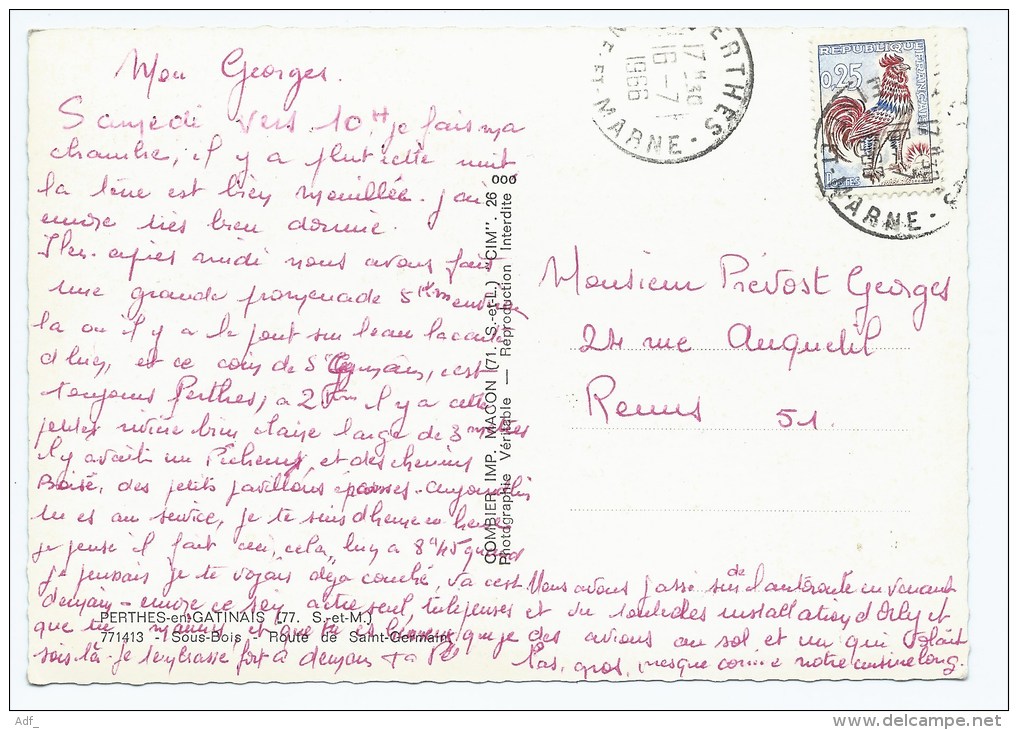 Mon Georges.
Samedi vers 10H je fais ma
chambre, il y a plut cette nuit
la terre est bien mouillée. j'ai
encore très bien dormie.
Hier après midi nous avons fait
une grande promenade 5 km environ
la ou il y a le pont sur l'eau
et ce coin de S
toujours Perthes, a 2 Km il y a cette
rivière bien claire large de 3 mètres
il y avait un Pécheur, et des chemins
Boisé, des petits pavillons
tu es au service, je te suis d'heure en heure
je pense il fait ceci, cela, hier a 8h45 quand
je pensais je te voyais déja couché, va c'est
demain encore ce soir
que tu
sois là. je t'embrasse fort à demain ta
Nous avons passé sur de l'autoroute en venant
et vu toutes les installations d'Orly et
des avions au sol et un qui volait
bas, gros, presque comme notre cuisine long.
PERTHES-en-GATINAIS (77. S.-et-M.)
771413 - Sous-Bois - Route de Saint-Germain
COMBIER IMP. MACON (71. S.-et-L.) "CIM". 26 000
Photographie Véritable — Reproduction Interdite
PERTHES
17 H 30
16 - 7
1966
NE-ET-MARNE
REPUBLIQUE
FRANÇAISE
0,25
POSTES
ET-MARNE
Monsieur Prévost Georges
24 rue Anquetil
Reims 51.
Adf_
www.delcampe.net